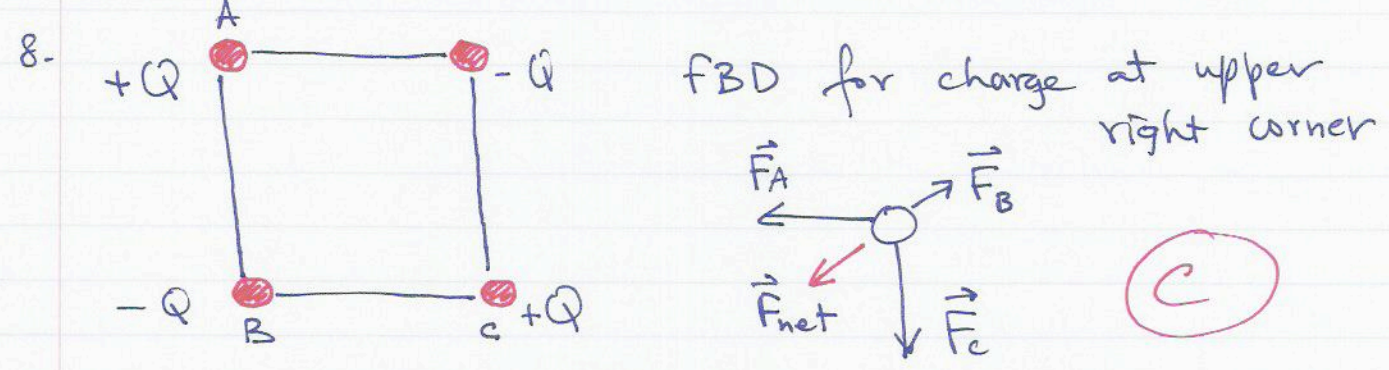 8.
A
+Q
-Q
-Q
B
C
+Q
FBD for charge at upper
right corner
F⃗A
F⃗B
F⃗net
F⃗C
C